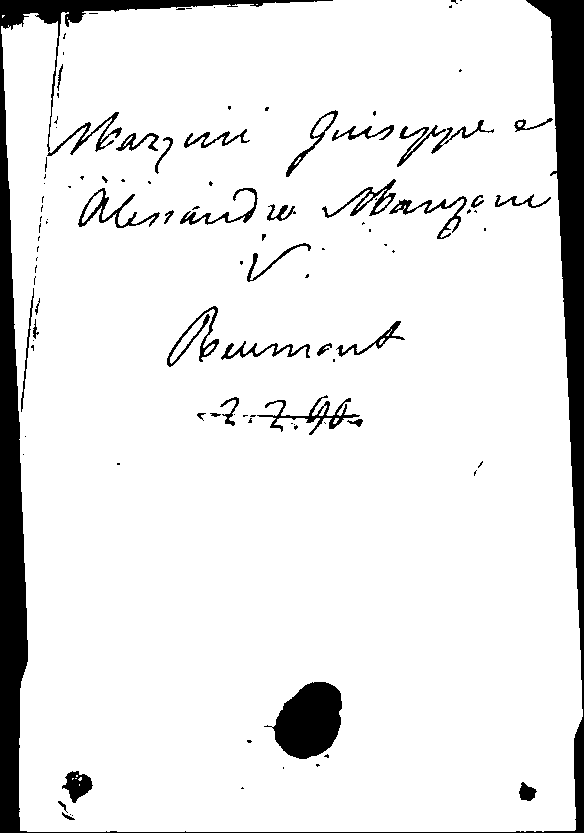 Mazzini Guiseppe e
Alessandro Manzoni
V.
Reumont
2.2.90.